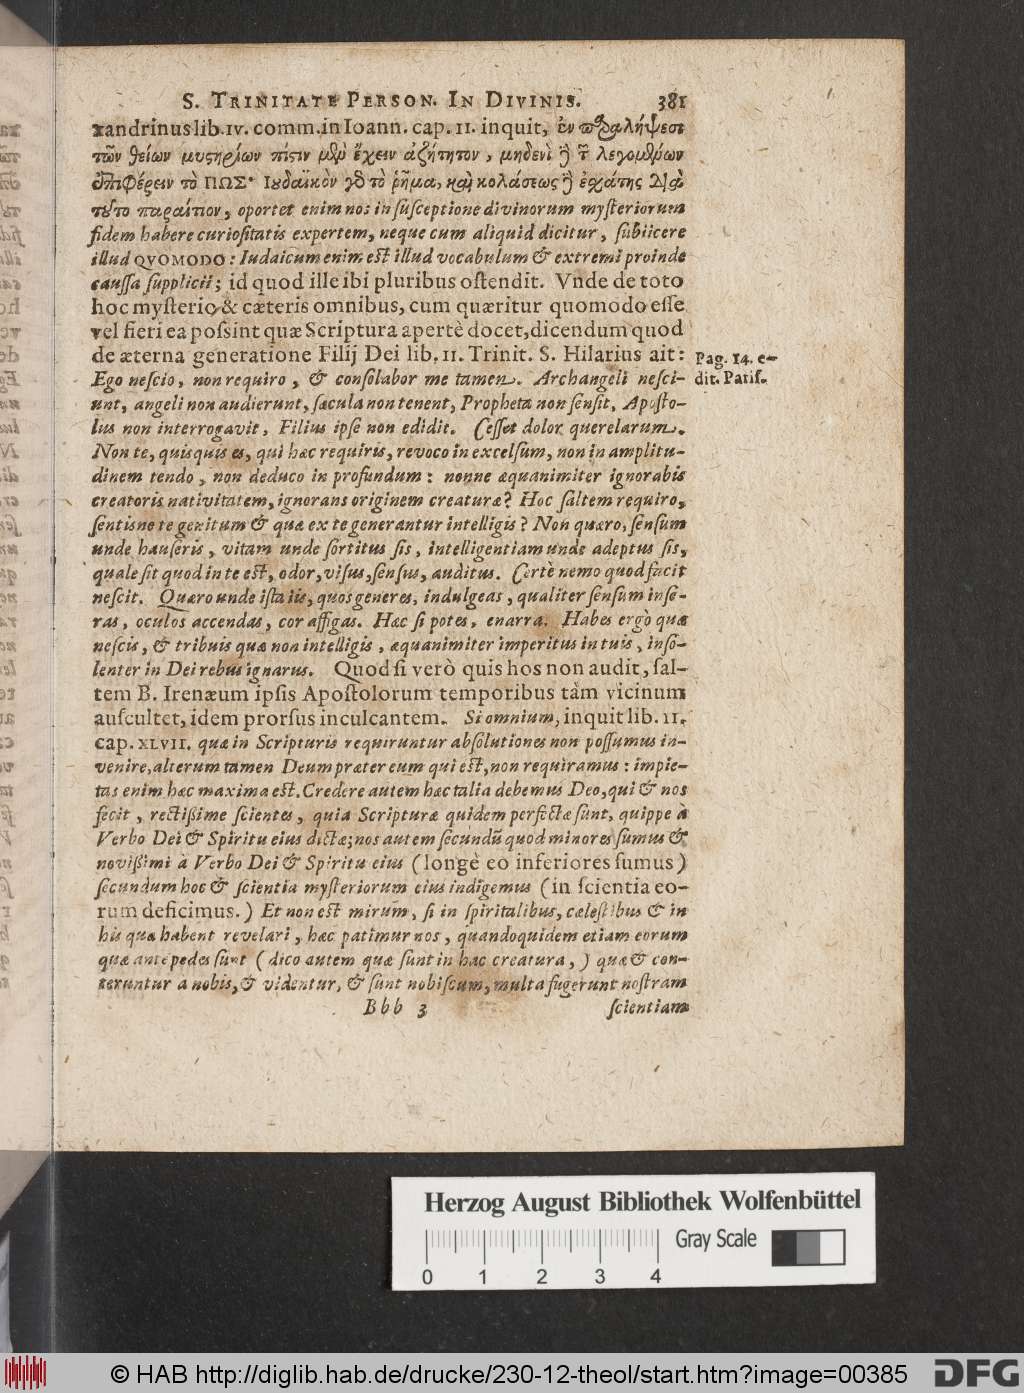 S. TRINITATE PERSON. IN DIVINIS. 381
xandrinus lib. IV. comm. in Ioann. cap. 11. inquit, ἐν παραλήψεσι
τῶν θείων μυστηρίων πίστιν μὲν ἔχειν ἀζήτητον, μηδενὶ δὲ τῶν λεγομένων
ἐπιφέρειν τὸ ΠΩΣ· Ιουδαϊκὸν γὰρ τὸ ῥῆμα, καὶ κολάσεως δὲ ἐσχάτης διὰ
τοῦτο παραίτιον, oportet enim nos in ſuſceptione divinorum myſteriorum
fidem habere curioſitatis expertem, neque cum aliquid dicitur, ſubiicere
illud QVOMODO: Iudaicum enim eſt illud vocabulum & extremi proinde
cauſſa ſupplicii; id quod ille ibi pluribus oſtendit. Vnde de toto
hoc myſterio & cæteris omnibus, cum quæritur quomodo eſſe
vel fieri ea poſsint quæ Scriptura apertè docet, dicendum quod
de æterna generatione Filij Dei lib. 11. Trinit. S. Hilarius ait:
Pag. 14. e-
dit. Pariſ.
Ego neſcio, non requiro, & conſolabor me tamen. Archangeli neſci-
unt, angeli non audierunt, ſæcula non tenent, Propheta non ſenſit, Apoſto-
lus non interrogavit, Filius ipſe non edidit. Ceſſet dolor querelarum.
Non te, quisquis es, qui hæc requiris, revoco in excelſum, non in amplitu-
dinem tendo, non deduco in profundum: nonne æquanimiter ignorabis
creatoris nativitatem, ignorans originem creaturæ? Hoc ſaltem requiro,
ſentisne te genitum & quæ ex te generantur intelligis? Non quæro, ſenſum
unde hauſeris, vitam unde ſortitus ſis, intelligentiam unde adeptus ſis,
quale ſit quod in te eſt, odor, viſus, ſenſus, auditus. Certè nemo quod facit
neſcit. Quæro unde iſta iis, quos generes, indulgeas, qualiter ſenſum inſe-
ras, oculos accendas, cor affigas. Hæc ſi potes, enarra. Habes ergò quæ
neſcis, & tribuis quæ non intelligis, æquanimiter imperitus in tuis, inſo-
lenter in Dei rebus ignarus. Quod ſi verò quis hos non audit, ſal-
tem B. Irenæum ipſis Apoſtolorum temporibus tàm vicinum
auſcultet, idem prorſus inculcantem. Si omnium, inquit lib. 11.
cap. XLVII. quæ in Scripturis requiruntur abſolutiones non poſſumus in-
venire, alterum tamen Deum præter eum qui eſt, non requiramus: impie-
tas enim hæc maxima eſt. Credere autem hæc talia debemus Deo, qui & nos
fecit, rectißime ſcientes, quia Scripturæ quidem perfectæ ſunt, quippe à
Verbo Dei & Spiritu eius dictæ; nos autem ſecundū quod minores ſumus &
novißimi à Verbo Dei & Spiritu eius (longè eo inferiores ſumus)
ſecundum hoc & ſcientia myſteriorum eius indigemus (in ſcientia eo-
rum deficimus.) Et non eſt mirum, ſi in ſpiritalibus, cæleſtibus & in
his quæ habent revelari, hæc patimur nos, quandoquidem etiam eorum
quæ ante pedes ſunt (dico autem quæ ſunt in hac creatura,) quæ & con-
teruntur a nobis, & videntur, & ſunt nobiſcum, multa fugerunt noſtram
Bbb 3 ſcientiam
Herzog August Bibliothek Wolfenbüttel
Gray Scale
0 1 2 3 4
© HAB http://diglib.hab.de/drucke/230-12-theol/start.htm?image=00385
DFG